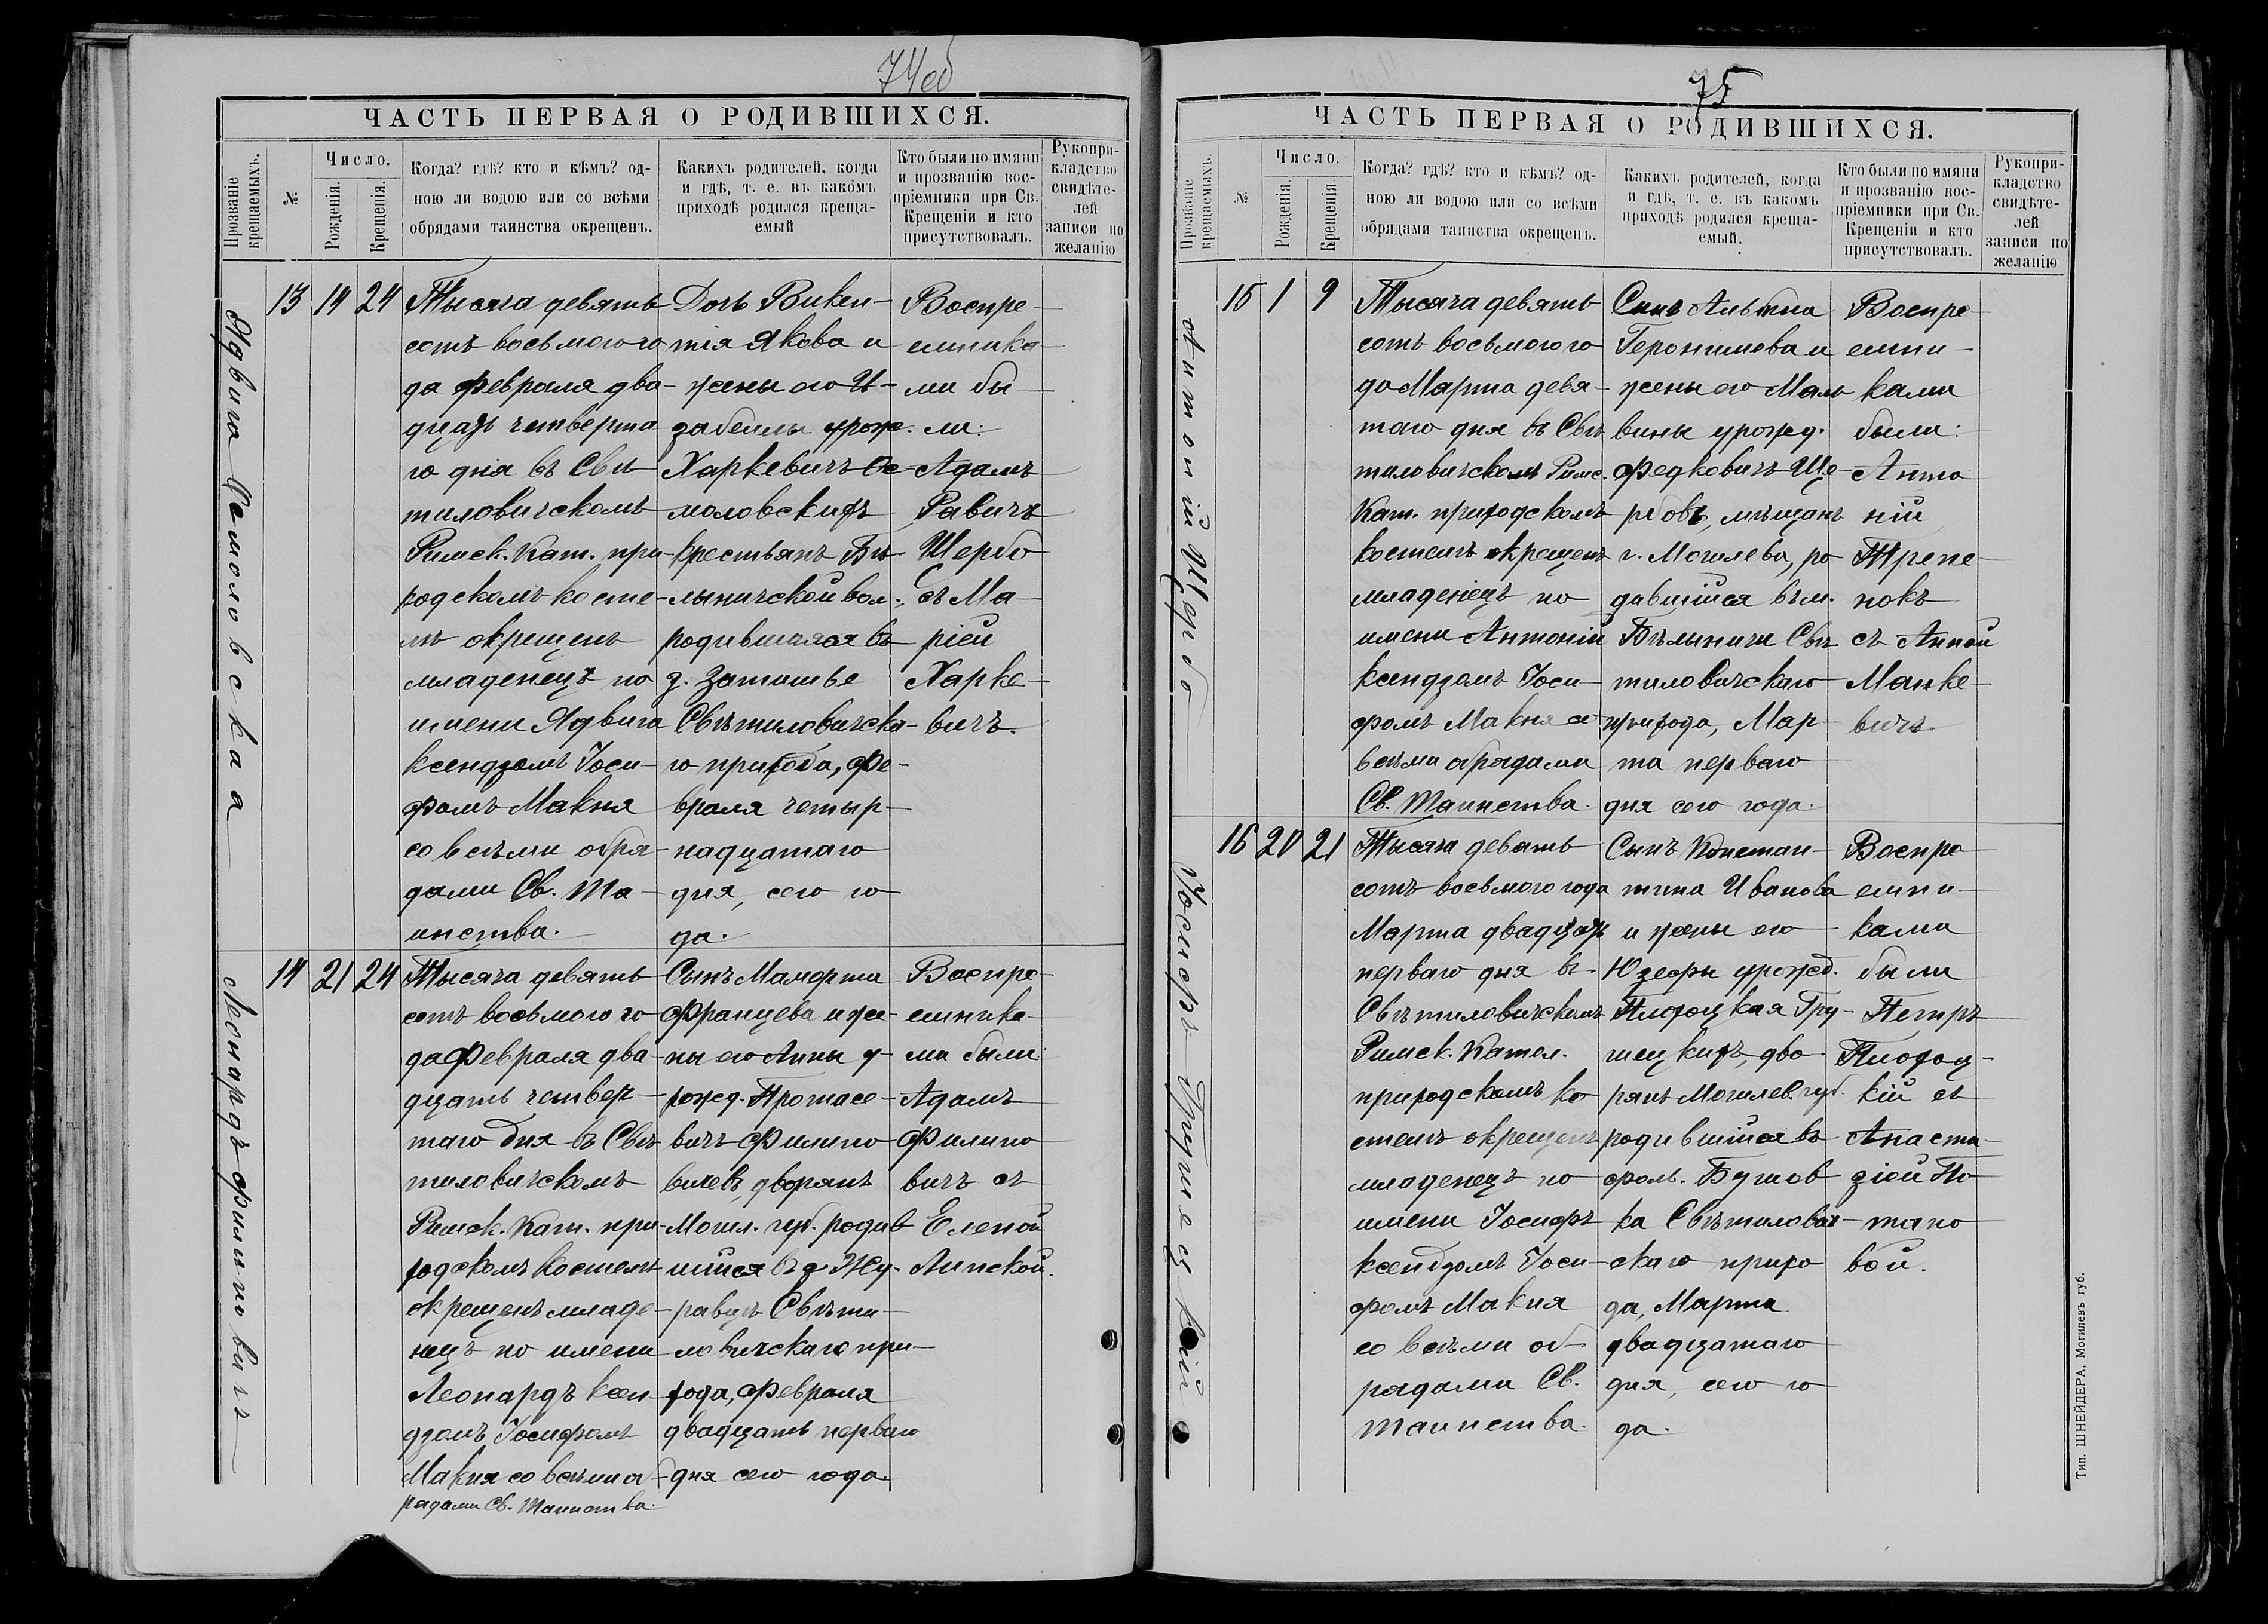 74об
ЧАСТЬ ПЕРВАЯ О РОДИВШИХСЯ.
Прозваніе крещаемыхъ.
№
Число.
Рожденія.
Крещенія.
Когда? гдѣ? кто и кѣмъ? од-
ною ли водою или со всѣми
обрядами таинства окрещенъ.
Какихъ родителей, когда
и гдѣ, т. е. въ какомъ
приходѣ родился креща-
емый
Кто были по имяни
и прозванію вос-
пріемники при Св.
Крещеніи и кто
присутствовалъ.
Рукопри-
кладство
свидѣте-
лей
записи по
желанію
Ядвига Семоловская
13 14 24
Тысяча девять
сотъ восьмого го
да февраля два-
дцать четверта
го дня въ Свѣ
тиловичскомъ
Римск. Кат. при-
ходскомъ косте-
лѣ окрещенъ
младенецъ по
имени Ядвига
ксендзомъ Іоси-
фомъ Макня
со всѣми обря-
дами Св. Та-
инства.
Дочь Викен-
тія Якова и
жены его И-
забеллы урож.
Харкевичъ Се-
моловскихъ
крестьянъ Бѣ-
лыничской вол.,
родившаяся въ
д. Затишье
Свѣтиловичска-
го прихода, фе-
враля четыр-
надцатаго
дня, сего го
да.
Воспре-
емника-
ми бы-
ли:
Адамъ
Равичъ
Щербо
съ Ма-
ріей
Харке-
вичъ.
Леонардъ Филиповичъ
14 21 24
Тысяча девять
сотъ восьмого го
да февраля два-
дцать четвер-
таго дня въ Свѣ
тиловичскомъ
Римск. Кат. при-
ходскомъ костелѣ
окрещенъ младе-
нецъ по имени
Леонардъ ксен-
дзомъ Іосифомъ
Макня со всѣми об-
рядами Св. Таинства.
Сынъ Мамерта
Францева и же-
ны его Анны у-
рожд. Протасе-
вичъ Филипо-
вичевъ дворянъ
Могил. губ. родив
шійся въ д Жу-
равцъ Свѣти-
ловичскаго при-
хода, февраля
двадцать перваго
дня сего года.
Воспре-
емника-
ми были
Адамъ
Филипо
вичъ съ
Еленой
Липской.
75
ЧАСТЬ ПЕРВАЯ О РОДИВШИХСЯ.
Прозваніе крещаемыхъ.
№
Число.
Рожденія.
Крещенія
Когда? гдѣ? кто и кѣмъ? од-
ною ли водою или со всѣми
обрядами таинства окрещенъ.
Какихъ родителей, когда
и гдѣ, т. е. въ какомъ
приходѣ родился креща-
емый.
Кто были по имяни
и прозванію вос-
пріемники при Св.
Крещеніи и кто
присутствовалъ.
Рукопри-
кладство
свидѣте-
лей
записи по
желанію
Антоній Щербо
15 1 9
Тысяча девять
сотъ восьмого го
да Марта девя-
таго дня въ Свѣ
тиловичскомъ Римс.
Кат. приходскомъ
костелѣ окрещенъ
младенецъ по
имени Антоній
ксендзомъ Іоси-
фомъ Макня со
всѣми обрядами
Св. Таинства.
Сынъ Альбина
Геронимова и
жены его Маль
вины урожд.
Федковичъ Ще-
рбовъ, мѣщанъ
г. Могилева, ро
дившійся въ м.
Бѣлыничи Свѣ
тиловичскаго
прихода, Мар-
та перваго
дня сего года.
Воспре-
емни-
ками
были:
Анто
ній
Трепе-
нокъ
съ Анной
Манке-
вичъ.
Іосифъ Грушецкій
16 20 21
Тысяча девять
сотъ восьмого года
Марта двадцать
перваго дня въ
Свѣтиловичскомъ
Римск. Катол.
приходскомъ ко
стелѣ окрещенъ
младенецъ по
имени Іосифъ
ксендзомъ Іоси-
фомъ Макня
со всѣми об-
рядами Св.
Таинства.
Сынъ Констан-
тина Иванова
и жены его
Юзефы урожд.
Пиотоцкая Гру-
шецкихъ, дво-
рянъ Могилев. губ.
родившійся въ
фольв. Бушов-
ка Свѣтилович-
скаго прихо
да, Марта
двадцатаго
дня, сего го
да.
Воспре-
емни-
ками
были
Петръ
кій съ
Анаста-
зіей По-
тапо
вой.
Тип. ШНЕЙДЕРА, Могилевъ губ.